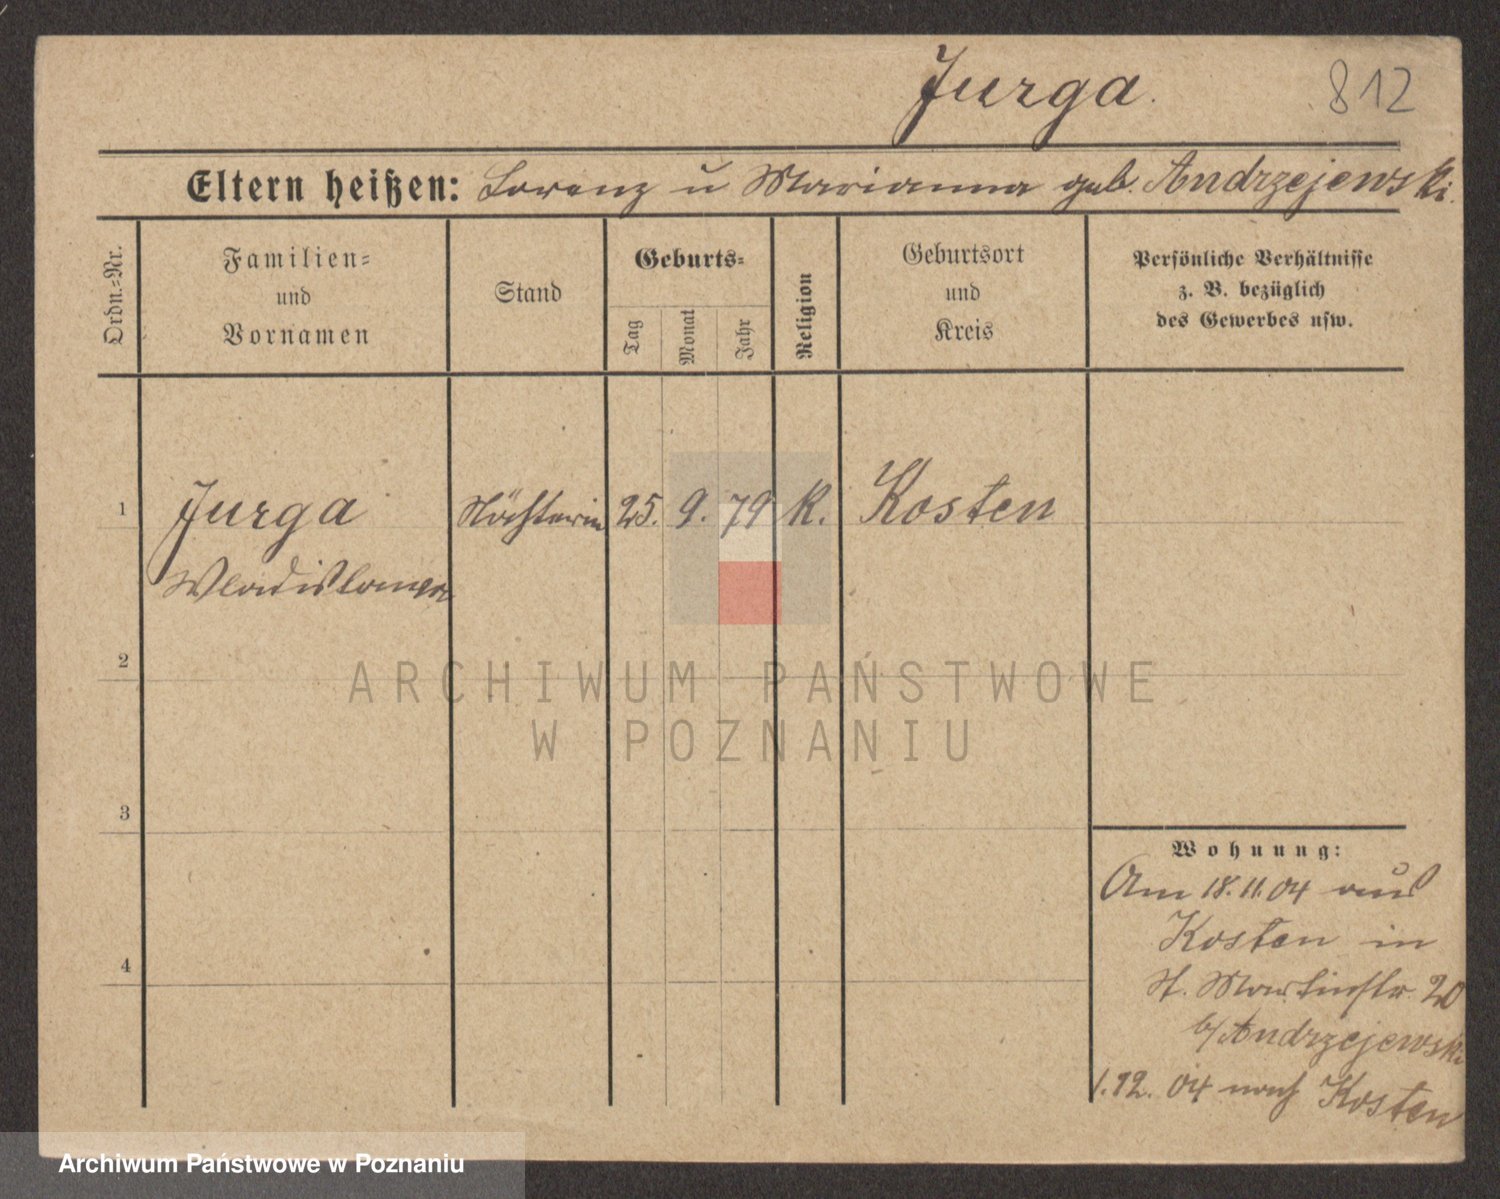 Jurga.
812
Eltern heißen: Lorenz u Marianna geb. Andrzejewski.
Ordn.-Nr.
Familien-
und
Vornamen
Stand
Geburts-
Tag
Monat
Jahr
Religion
Geburtsort
und
Kreis
Persönliche Verhältnisse
z. B. bezüglich
des Gewerbes usw.
1 Jurga 25. 9. 79 K. Kosten
Wladislawa
2
3
4
Wohnung:
Am 18.11.04 aus
Kosten in
St. Martinstr 20
b/Andrzejewski
1.12. 04 nach Kosten
ARCHIWUM PAŃSTWOWE
W POZNANIU
Archiwum Państwowe w Poznaniu